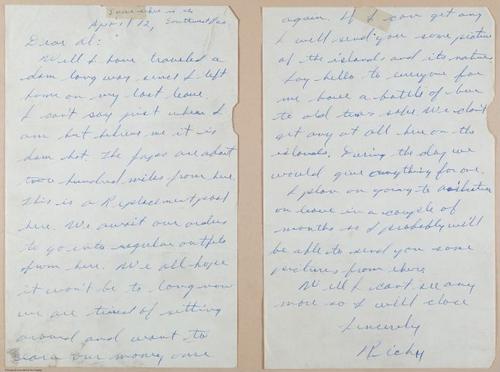 Somewhere in the
April 12, Southwest Pac.
Dear Al:
Well I have traveled a
dam long way since I left
home on my last leave.
I can't say just where I
am but believe me it is
dam hot. The Japs are about
two hundred miles from here.
This is a Replacement pool
here. We await our orders
to go into regular outfits
from here. We all hope
it won't be to long now
we are tired of sitting
around and want to
earn our money once
again. If I can get any
I will send you some pictures
of the islands and its natives
Say hello to everyone for
me have a bottle of beer
to old times sake. We don't
get any at all here on the
islands. During the day we
would give anything for one.
I plan on going to
on leave in a couple of
months so I probably will
be able to send you some
pictures from there.
Well I can't see any
more so I will close
Sincerely
Richy